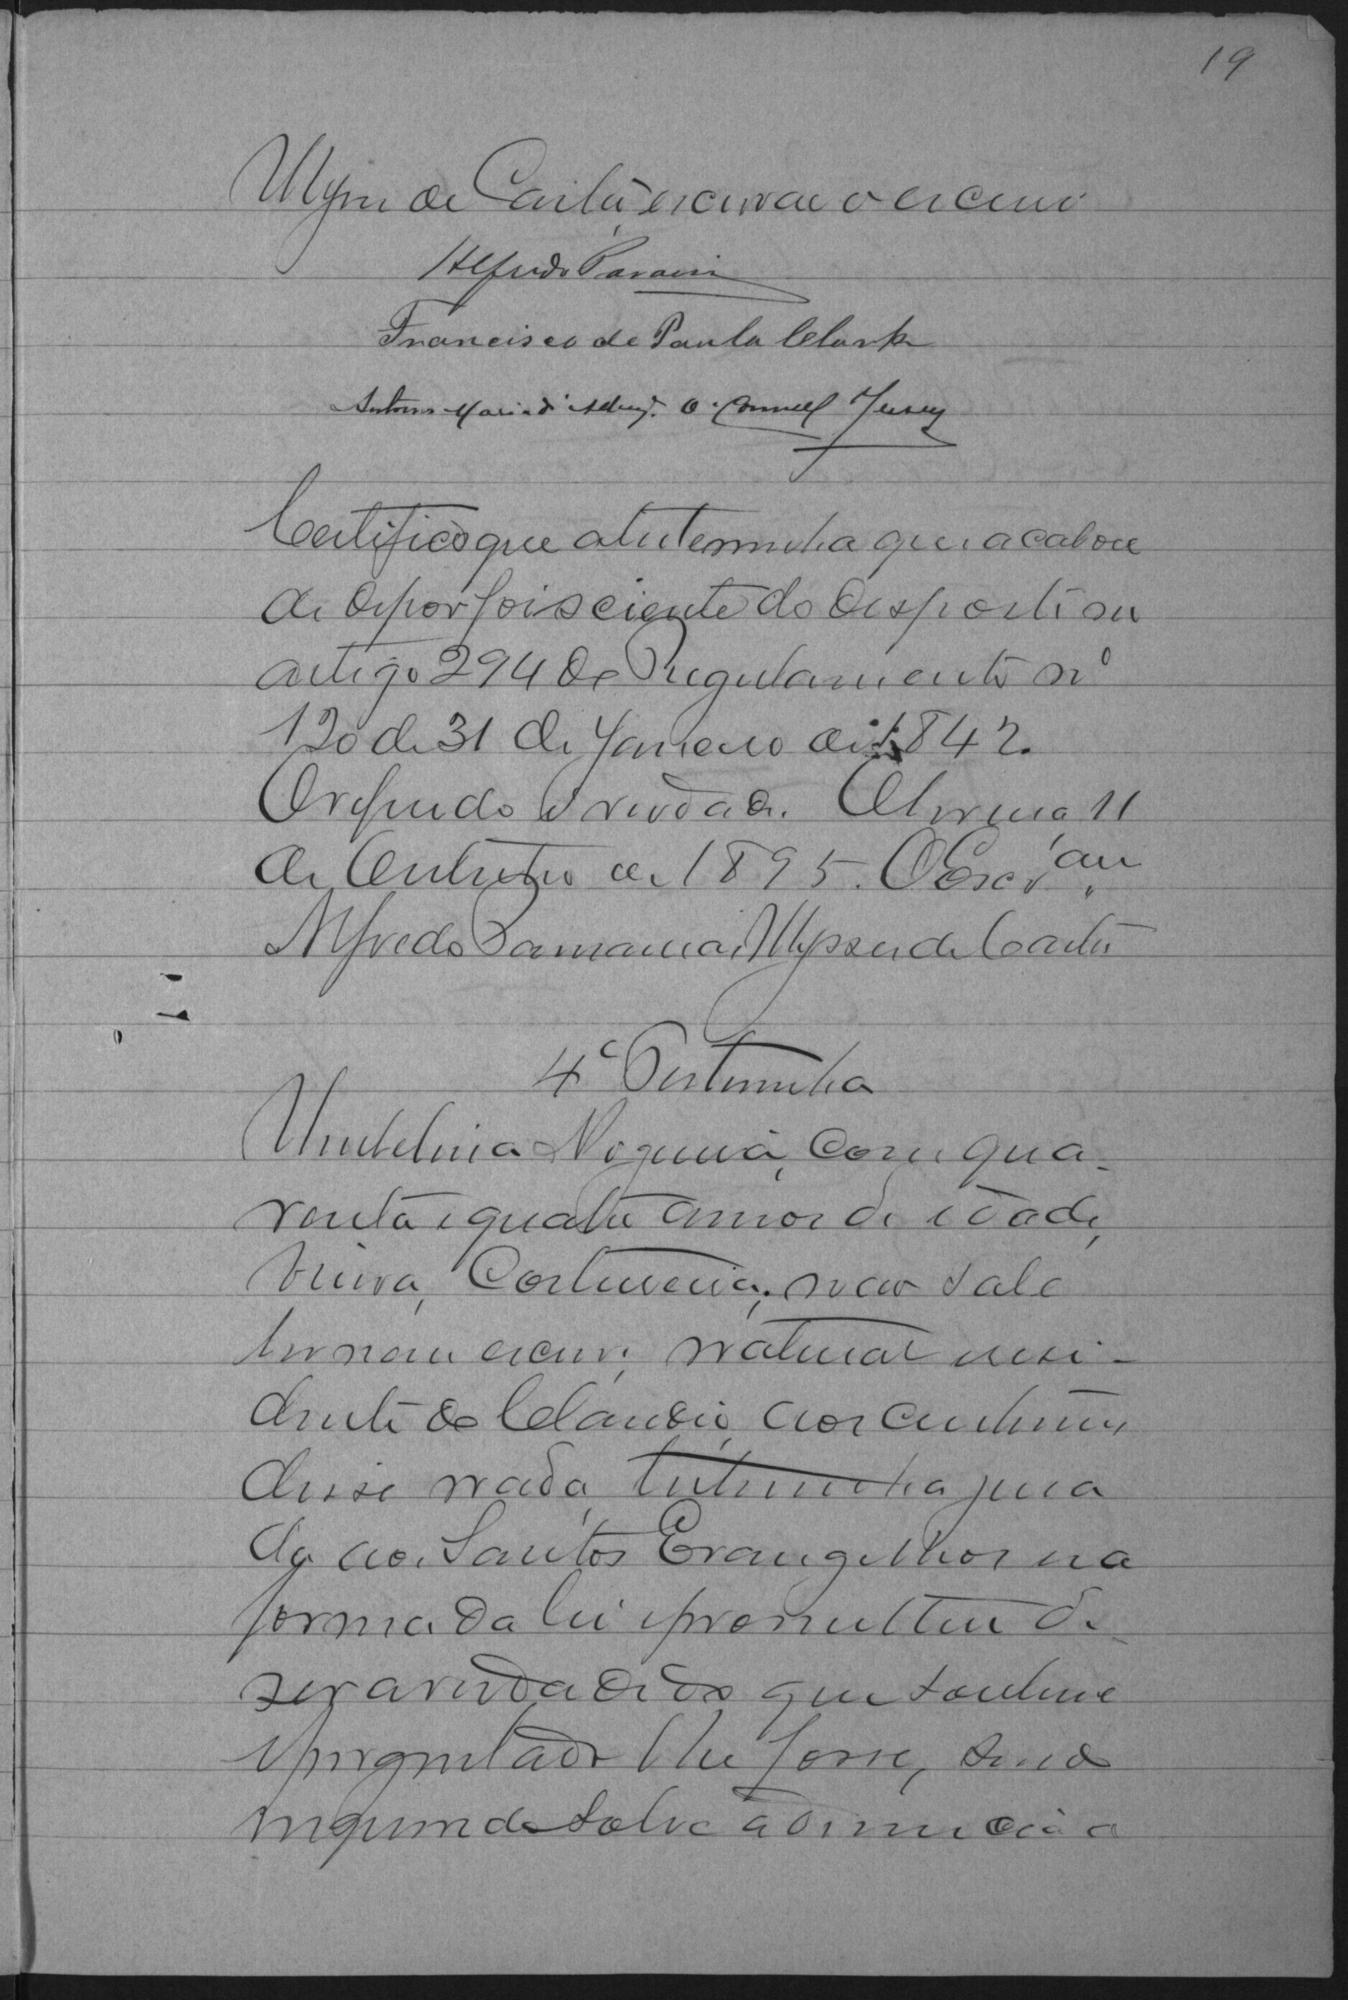 19
Ulysses de Castro, escrivão o escrevi
Alfredo
Francisco de Paula Clark
Antonio Maria d' O. Connell Jersey
Certifico que a testemunha que acabou
de depor foi sciente do desposto no
artigo 294 do Regulamento nº
120 de 31 de Janeiro de 1842.
O referido é verdade. 11
de Outubro de 1895. O Escrivão
Alfredo Ulysses de Castro
4ª Testemunha
Umbelina Nogueira, com qua-
renta e quatro annos de idade,
viuva, Costureira, não sabe
ler nem escrever, natural e resi-
dente do aos costumes
disse nada, testemunha jura
da aos Santos Evangelhos na
forma da lei e prometteu di-
zer a verdade do que soubesse
e perguntado lhe fosse, sendo
inquerida sobre a denuncia